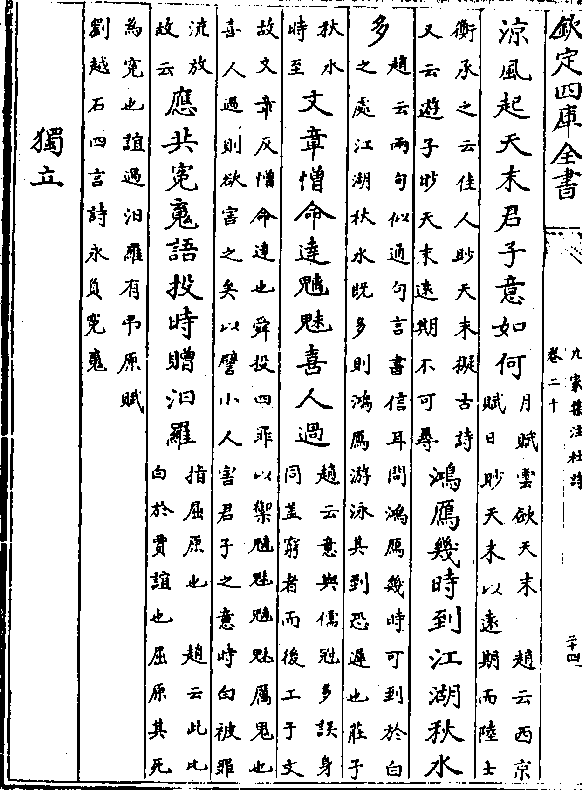 欽定四庫全書
九家集注杜詩
卷二十
二十四
涼風起天末君子意如何
月賦雲歛天末　趙云西京
賦曰眇天末以遠期而陸士
衡承之云佳人眇天末擬古詩
又云遊子眇天末遠期不可尋
鴻鴈幾時到江湖秋水
多
趙云兩句似通句言書信耳問鴻鴈幾時可到於白
之處江湖秋水既多則鴻鴈游泳其到恐遲也莊子
秋水
時至
文章憎命達魑魅喜人過
趙云意與儒冠多誤身
同蓋窮者而後工于文
故文章反憎命達也舜投四罪以禦魑魅魑魅厲鬼也
喜人過則欲害之矣以譬小人害君子之意時白被罪
流放
故云
應共寃䰟語投詩贈汨羅
指屈原也　趙云此比
白於賈誼也屈原其死
為寃也誼過汨羅有弔原賦
劉越石四言詩永負寃䰟
獨立